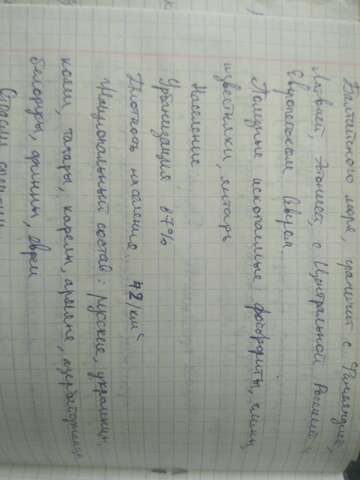 Балтийского моря, граничит с Финляндией,
Латвией, Эстонией, с Центральной Россией и
Европейским Севером
Полезные ископаемые: фосфориты, глины,
известняки, янтарь
Население
Урбанизация 87%
Плотность населения 42/км²
Национальный состав: русские, украинцы,
коми, татары, карелы, армяне, азербайджанцы
белорусы, финны, евреи